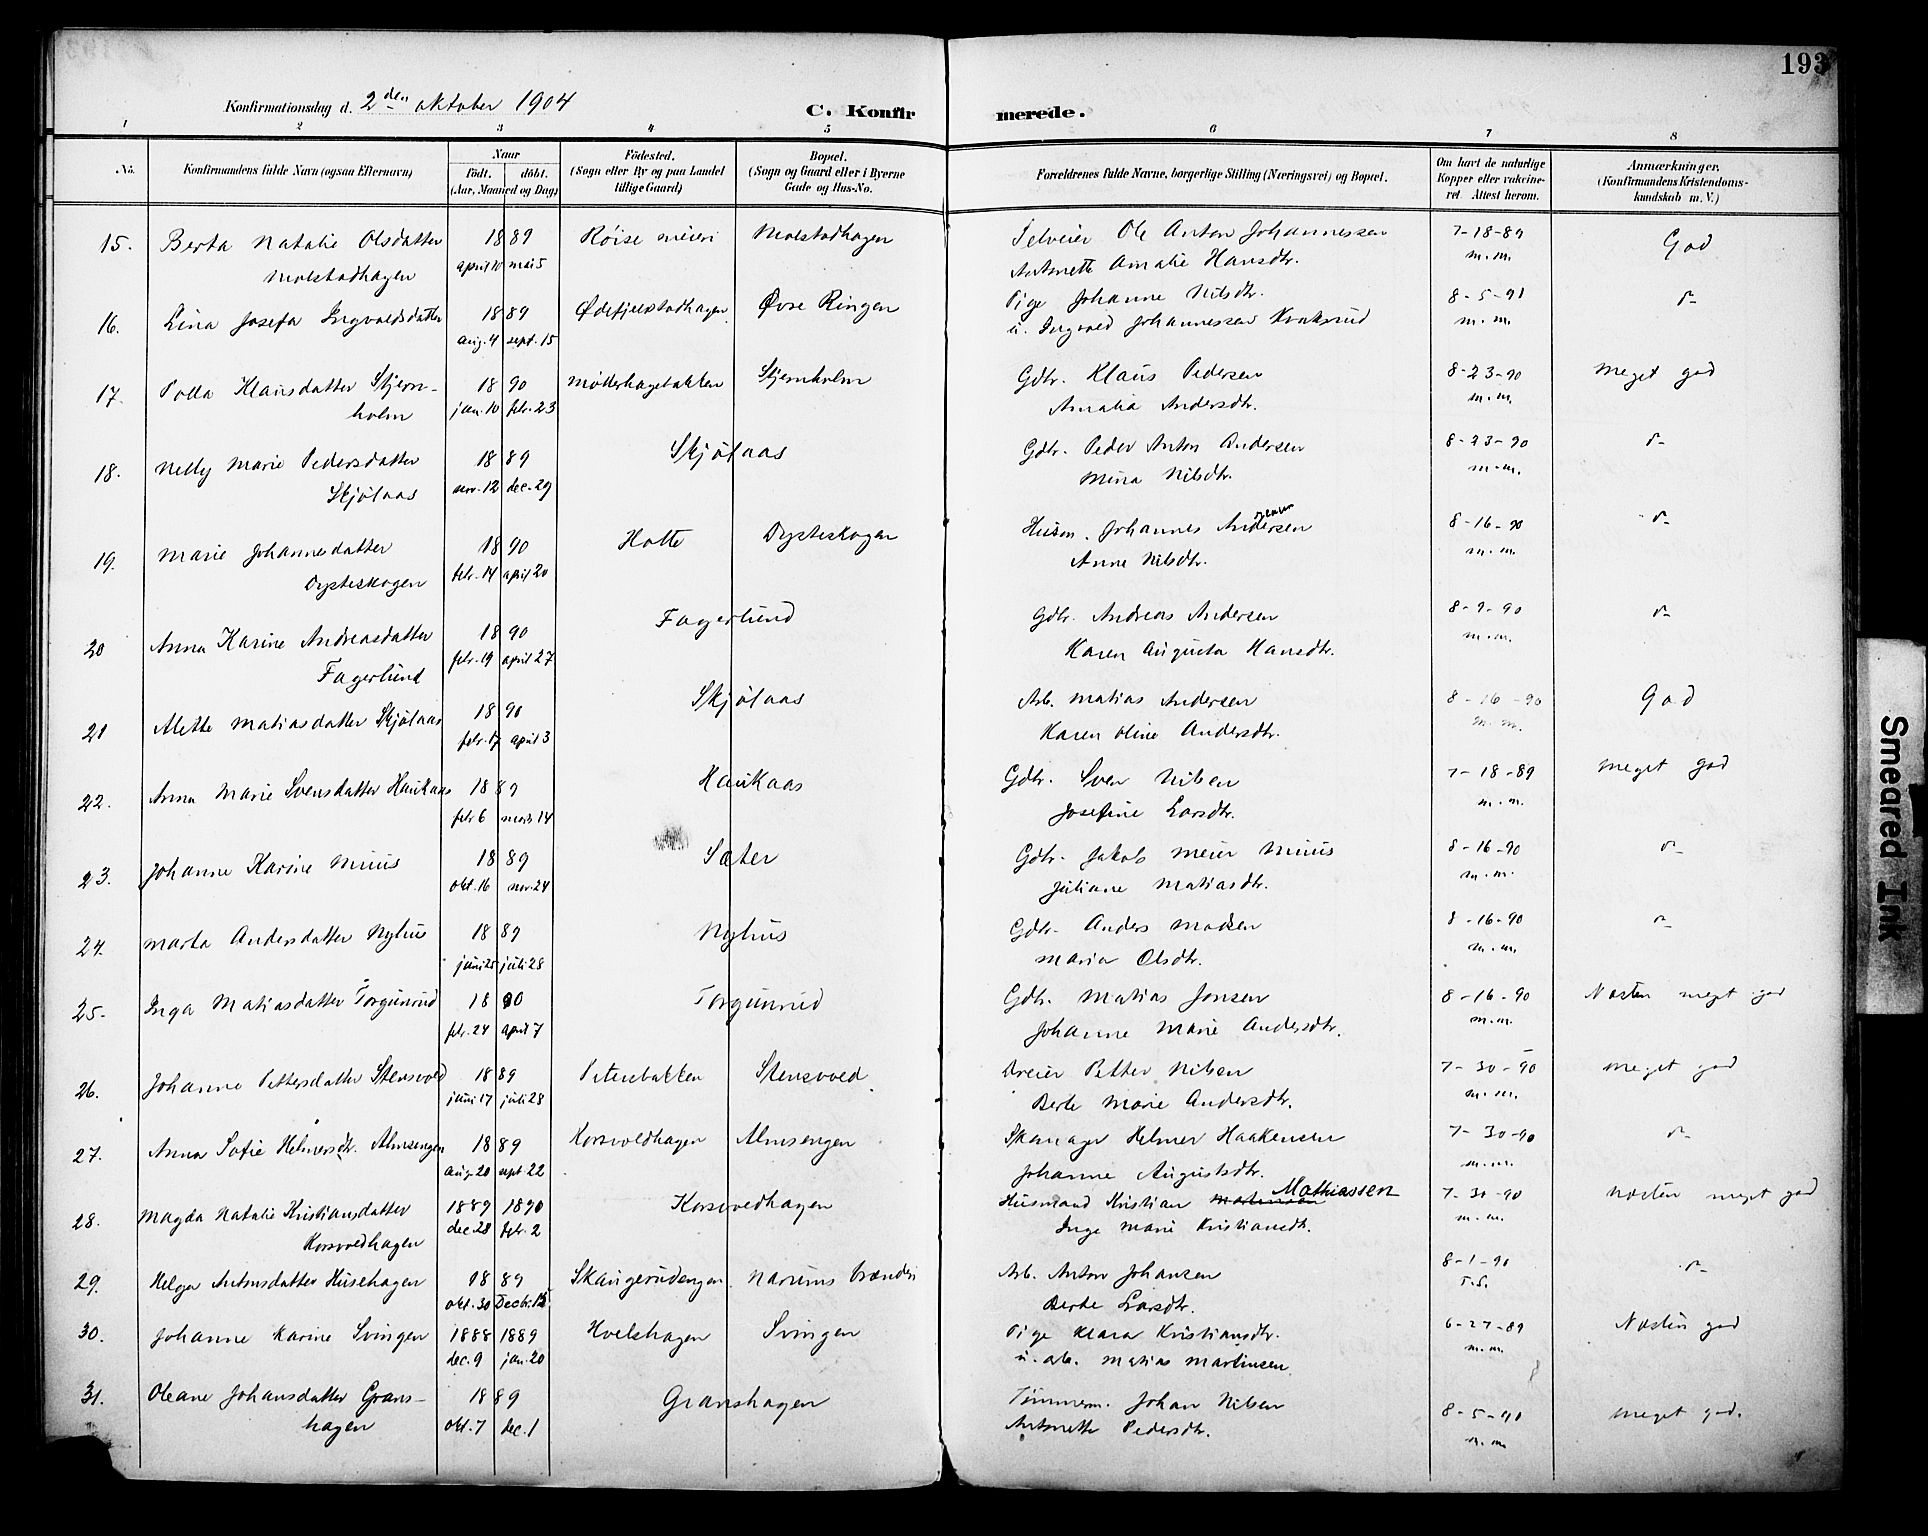 193
Konfirmationsdag d. 2den oktober 1904
C. Konfirmerede.
1 2 3 4 5 6 7 8
No. Konfirmandens fulde Navn (ogsaa Efternavn) Naar Födt. döbt. (Aar, Maaned og Dag) Födested. (Sogn eller By og paa Landet tillige Gaard) Bopæl. (Sogn og Gaard eller i Byerne Gade og Hus-No. Forældrenes fulde Navne, borgerlige Stilling (Næringsvei) og Bopæl. Om havt de naturlige Kopper eller vakcineret. Attest herom. Anmærkninger. (Konfirmandens Kristendomskundskab m. V.)
15. Berta Natalie Olsdatter 1889 Röise meieri Molstadhagen Selveier Ole Anton Johannessen 7-18-89 God
Molstadhagen april 10 mai 5 Antonette Amalie Hansdtr. m.m.
16. Lina Josefa Ingvaldsdatter 1889 Ødefjelstadhagen Øvre Ringen Pige Johanne Nilsdtr. 8-5-91
aug. 4 sept. 15 u. Ingvald Johannessen m.m.
17. Polla Klausdatter Stjern- 1890 Stjernholm Gdbr. Klaus Pedersen 8-23-90 Meget god
holm jan. 10 febr. 23 Amalia Andersdtr. m.m.
18. Nelly Marie Pedersdatter 1889 Skjölaas Gdbr. Peder Anton Andersen 8-23-90
Skjölaas nov. 12 dec. 29 Mina Nilsdtr. m.m.
19. Marie Johannesdatter 1890 Hotte Dysteskogen Husm. Johannes Andersen 8-16-90
Dysteskogen febr. 14 april 20 Anne Nilsdtr. m.m.
20 Anna Karine Andreasdatter 1890 Fagerlund Gdbr. Andreas Andersen 8-9-90
Fagerlund febr. 19 april 27 Karen Augusta Hansdtr. m.m.
21 Alette Matiasdatter Skjölaas 1890 Skjölaas Arb. Matias Andersen 8-16-90 God
febr. 17 april 3 Karen Oline Andersdtr. m.m.
22. Anna Marie Svensdatter Haukaas 1889 Haukaas Gdbr. Sven Nilsen 7-18-89 Meget god
febr 6 marts 14 Josefine Larsdtr. m.m.
23. Johanne Karine Muus 1889 Sæter Gdbr. Jakob Meier Muus 8-16-90
okt. 16 nov. 24 Juliane Matiasdtr. m.m.
24. Marta Andersdatter Nyhus 1889 Nyhus Gdbr. Anders Madsen 8-16-90
juni 25 juli 28 Maria Olsdtr. m.m.
25. Inga Matiasdatter Torgunrud 1890 Torgunrud Gdbr. Matias Jonsen 8-16-90 Næsten meget god
febr. 24 april 7 Johanne Marie Andersdtr. m.m.
26. Johanne Pettersdatter Stensvold 1889 Stensvold Dreier Petter Nilsen 7-30-90 Meget god
juni 17 juli 28 Berte Marie Andersdtr. m.m.
27. Anna Sofie Helmersdtr. Almsengen 1889 Korsvoldhagen Almsengen Skomager Helmer Haakensen 7-30-90
aug. 20 sept. 22 Johanne Augustsdtr. m.m.
28. Magda Natalie Kristiansdatter 1889 1890 Korsvoldhagen Husmand Kristian Mathiassen 7-30-90 Næsten meget god
Korsvoldhagen dec. 28 febr. 2 Inge Marie Kristiansdtr. m.m.
29. Helga Antonsdatter Husehagen 1889 Skaugerudengen Narums brænderi Arb. Anton Johansen 8-1-90
okt. 30 Decbr. 15 Berte Larsdtr.
30. Johanne Karine Svingen 1888 1889 Hoelshagen Svingen Pige Klara Kristiansdtr. 6-27-89 Næsten god
dec. 9 jan. 20 u. arb. Matias Martinsen m.m.
31. Oleane Johansdatter Grans- 1889 Granshagen Tömmerm. Johan Nilsen 8-5-90 meget god.
hagen okt. 7 dec. 1 Antonette Pedersdtr. m.m.
Smeared Ink